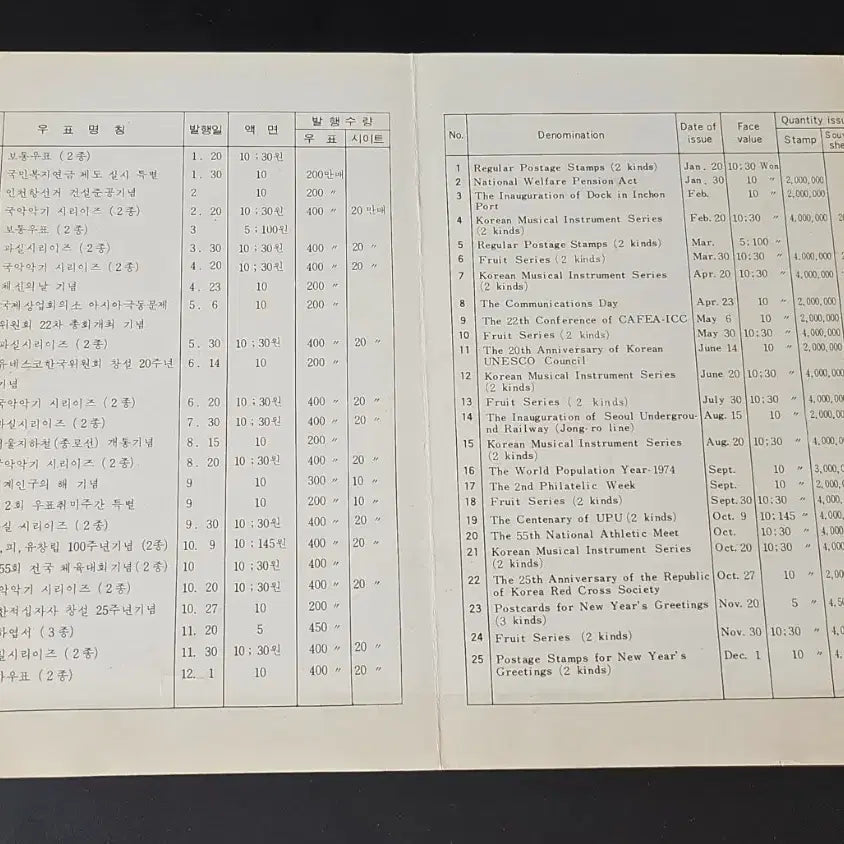 우 표 명 칭 발행일 액 면 발 행 수 량
우 표 시이트
보통우표 (2종) 1. 20 10 ; 30원
국민복지연금 제도 실시 특별 1. 30 10 200만매
인천항선거 건설준공기념 2 10 200 〃
국악악기 시리이즈 (2종) 2. 20 10 ; 30원 400 〃 20만매
보통우표 (2종) 3 5 ; 100원
과실시리이즈 (2종) 3. 30 10 ; 30원 400 〃 20 〃
국악악기 시리이즈 (2종) 4. 20 10 ; 30원 400 〃 20 〃
체신의날 기념 4. 23 10 200 〃
국제상업회의소 아시아극동문제 5. 6 10 200 〃
위원회 22차 총회개최 기념
과실시리이즈 (2종) 5. 30 10 ; 30원 400 〃 20 〃
유네스코한국위원회 창설 20주년 6. 14 10 200 〃
기념
국악악기 시리이즈 (2종) 6. 20 10 ; 30원 400 〃 20 〃
과실시리이즈 (2종) 7. 30 10 ; 30원 400 〃 20 〃
서울지하철(종로선) 개통기념 8. 15 10 200 〃
국악악기 시리이즈 (2종) 8. 20 10 ; 30원 400 〃 20 〃
계인구의 해 기념 9 10 300 〃 10 〃
2회 우표취미주간 특별 9 10 200 〃 10 〃
실 시리이즈 (2종) 9. 30 10 ; 30원 400 〃 20 〃
,피,유창립 100주년기념 (2종) 10. 9 10 ; 145원 400 〃 20 〃
55회 전국 체육대회기념(2종) 10 10 ; 30원 400 〃
악악기 시리이즈 (2종) 10. 20 10 ; 30원 400 〃 20 〃
한적십자사 창설 25주년기념 10. 27 10 200 〃
하엽서 (3종) 11. 20 5 450 〃
실시리이즈 (2종) 11. 30 10 ; 30원 400 〃 20 〃
우표 (2종) 12. 1 10 400 〃 20 〃
No. Denomination Date of issue Face value Quantity issu
Stamp Sou she
1 Regular Postage Stamps (2 kinds) Jan. 20 10:30 Won
2 National Welfare Pension Act Jan. 30 10 〃 2,000,000
3 The Inauguration of Dock in Inchon Feb. 10 〃 2,000,000
Port
4 Korean Musical Instrument Series Feb. 20 10:30 〃 4,000,000 20
(2 kinds)
5 Regular Postage Stamps (2 kinds) Mar. 5:100 〃
6 Fruit Series (2 kinds) Mar. 30 10:30 〃 4,000,000 2
7 Korean Musical Instrument Series Apr. 20 10:30 〃 4,000,000
(2 kinds)
8 The Communications Day Apr. 23 10 〃 2,000,000
9 The 22th Conference of CAFEA-ICC May 6 10 〃 2,000,000
10 Fruit Series (2 kinds) May 30 10:30 〃 4,000,000
11 The 20th Anniversary of Korean June 14 10 〃 2,000,000
UNESCO Council
12 Korean Musical Instrument Series June 20 10:30 〃 4,000,000
(2 kinds)
13 Fruit Series (2 kinds) July 30 10:30 〃 4,000,000
14 The Inauguration of Seoul Undergrou- Aug. 15 10 〃 2,000,00
nd Railway (Jong-ro line)
15 Korean Musical Instrument Series Aug. 20 10:30 〃 4,000,00
(2 kinds)
16 The World Population Year-1974 Sept. 10 〃 3,000,0
17 The 2nd Philatelic Week Sept. 10 〃 2,000,0
18 Fruit Series (2 kinds) Sept. 30 10:30 〃 4,000,
19 The Centenary of UPU (2 kinds) Oct. 9 10:145 〃 4,000,
20 The 55th National Athletic Meet Oct. 10:30 〃 4,000
21 Korean Musical Instrument Series Oct. 20 10:30 〃 4,000
(2 kinds)
22 The 25th Anniversary of the Republic Oct. 27 10 〃 2,00
of Korea Red Cross Society
23 Postcards for New Year's Greetings Nov. 20 5 〃 4,50
(3 kinds)
24 Fruit Series (2 kinds) Nov. 30 10:30 〃 4,0
25 Postage Stamps for New Year's Dec. 1 10 〃 4,
Greetings (2 kinds)